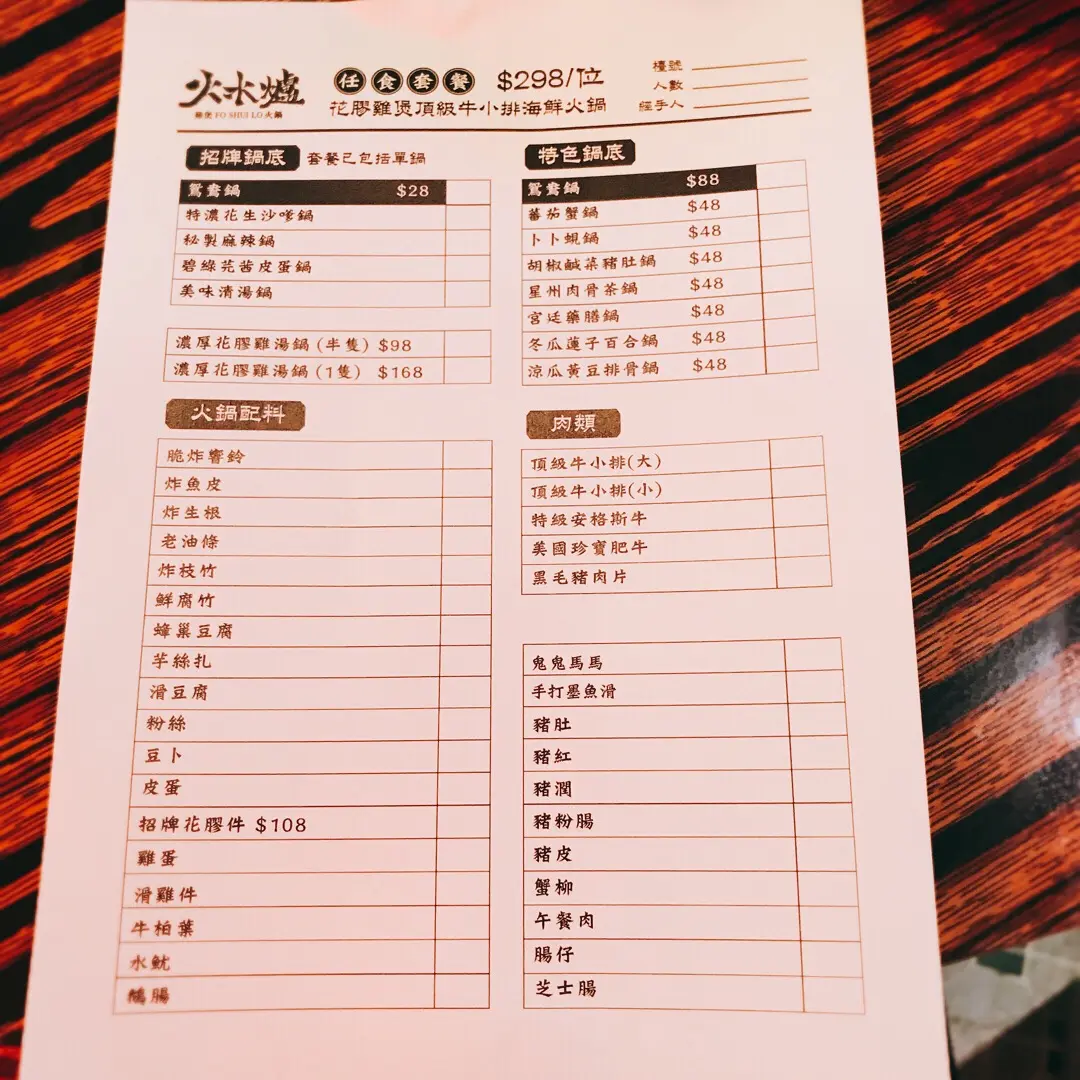 火水爐
雞煲 FO SHUI LO 火鍋
任食套餐 $298/位
花膠雞煲頂級牛小排海鮮火鍋
檯號
人數
經手人
招牌鍋底 套餐已包括單鍋
鴛鴦鍋 $28
特濃花生沙嗲鍋
秘製麻辣鍋
碧綠芫茜皮蛋鍋
美味清湯鍋
濃厚花膠雞湯鍋(半隻) $98
濃厚花膠雞湯鍋(1隻) $168
特色鍋底
鴛鴦鍋 $88
蕃茄蟹鍋 $48
卜卜蜆鍋 $48
胡椒鹹菜豬肚鍋 $48
星州肉骨茶鍋 $48
宮廷藥膳鍋 $48
冬瓜蓮子百合鍋 $48
涼瓜黃豆排骨鍋 $48
火鍋配料
脆炸響鈴
炸魚皮
炸生根
老油條
炸枝竹
鮮腐竹
蜂巢豆腐
芋絲扎
滑豆腐
粉絲
豆卜
皮蛋
招牌花膠件 $108
雞蛋
滑雞件
牛柏葉
水魷
鵝腸
肉類
頂級牛小排(大)
頂級牛小排(小)
特級安格斯牛
美國珍寶肥牛
黑毛豬肉片
鬼鬼馬馬
手打墨魚滑
豬肚
豬紅
豬潤
豬粉腸
豬皮
蟹柳
午餐肉
腸仔
芝士腸